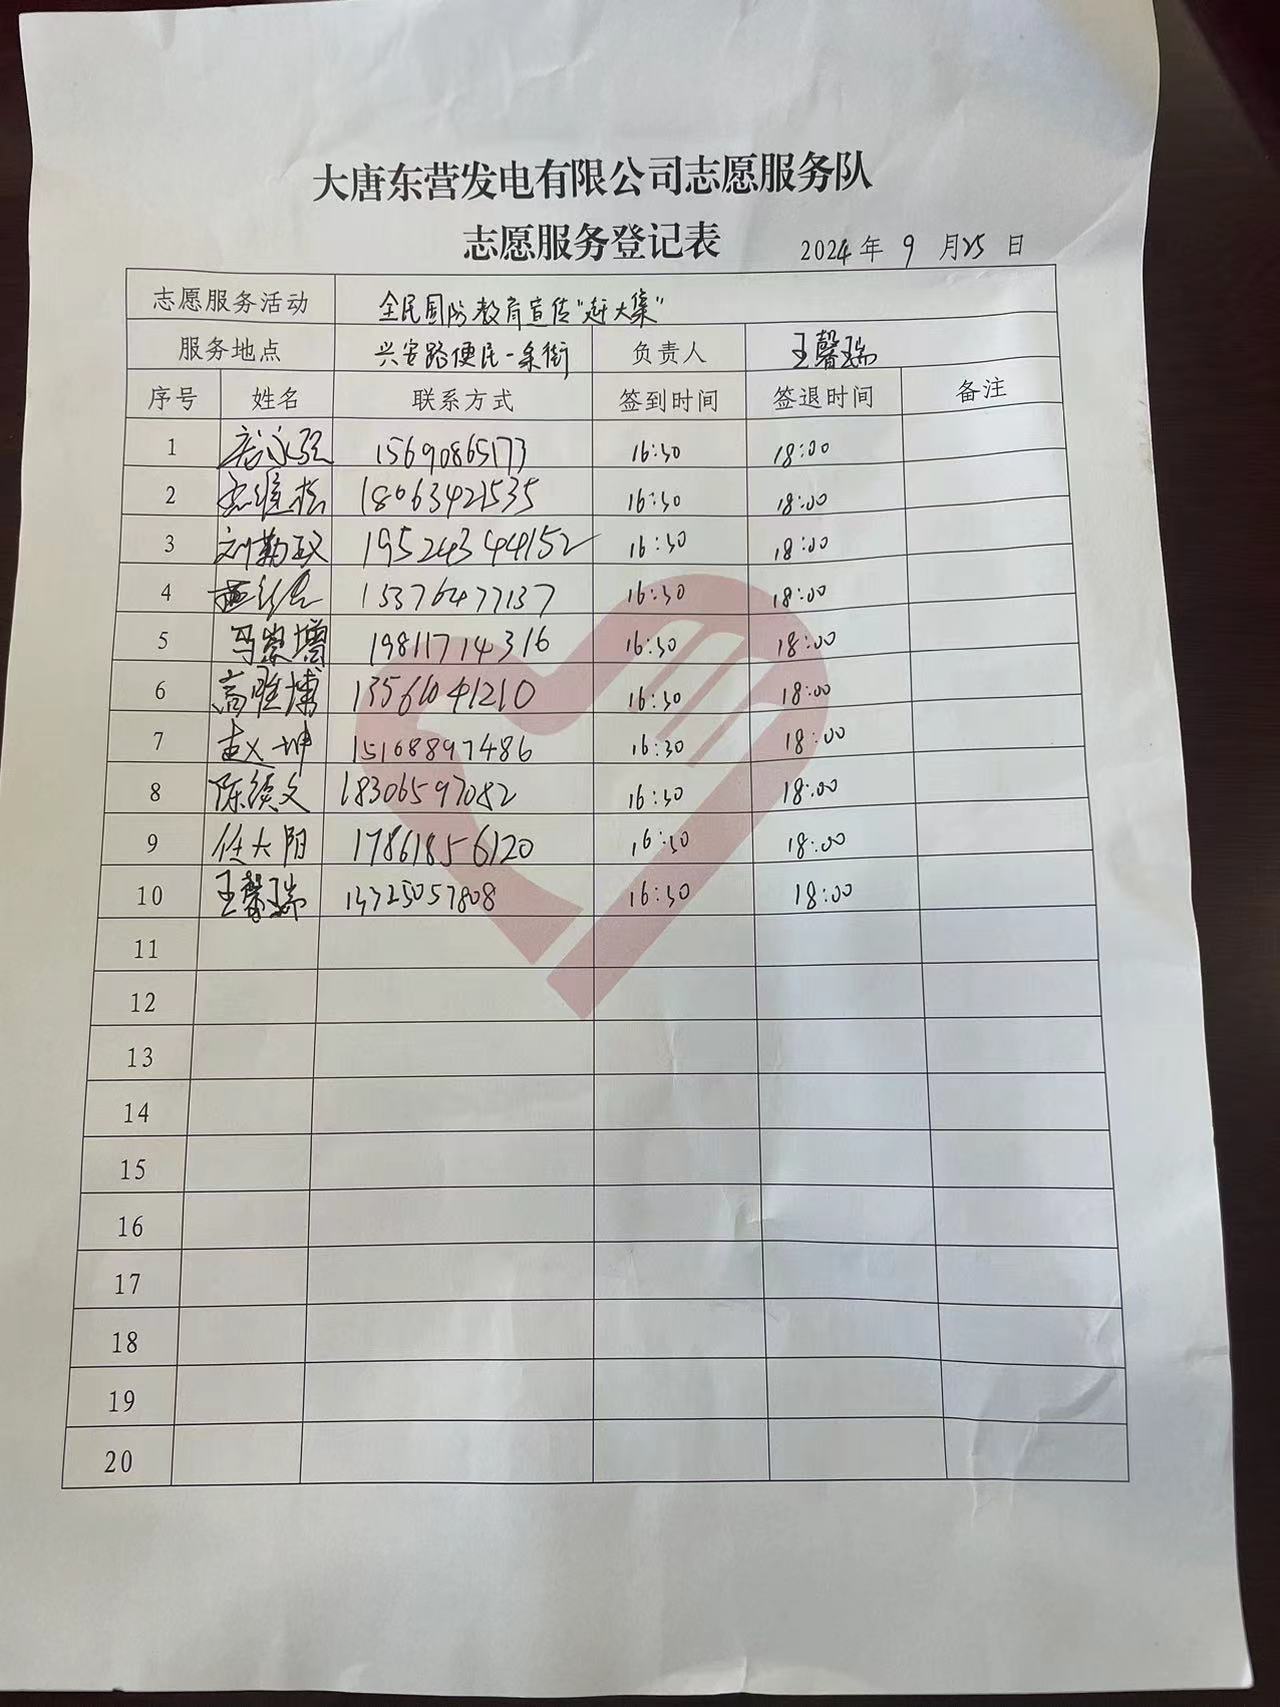 大唐东营发电有限公司志愿服务队
志愿服务登记表
2024年 9 月25 日
志愿服务活动 全民国防教育宣传"赶大集"
服务地点 兴安路便民一条街 负责人 王馨瑞
序号 姓名 联系方式 签到时间 签退时间 备注
1 15690865173 16:30 18:00
2 18063421535 16:30 18:00
3 刘勤政 19524344152 16:30 18:00
4 15376477137 16:30 18:00
5 马崇增 19811714316 16:30 18:00
6 高胜博 13561041210 16:30 18:00
7 赵坤 15168897486 16:30 18:00
8 陈绩文 18306597082 16:30 18:00
9 任大阳 17861856120 16:30 18:00
10 王馨瑞 13325057808 16:30 18:00
11
12
13
14
15
16
17
18
19
20